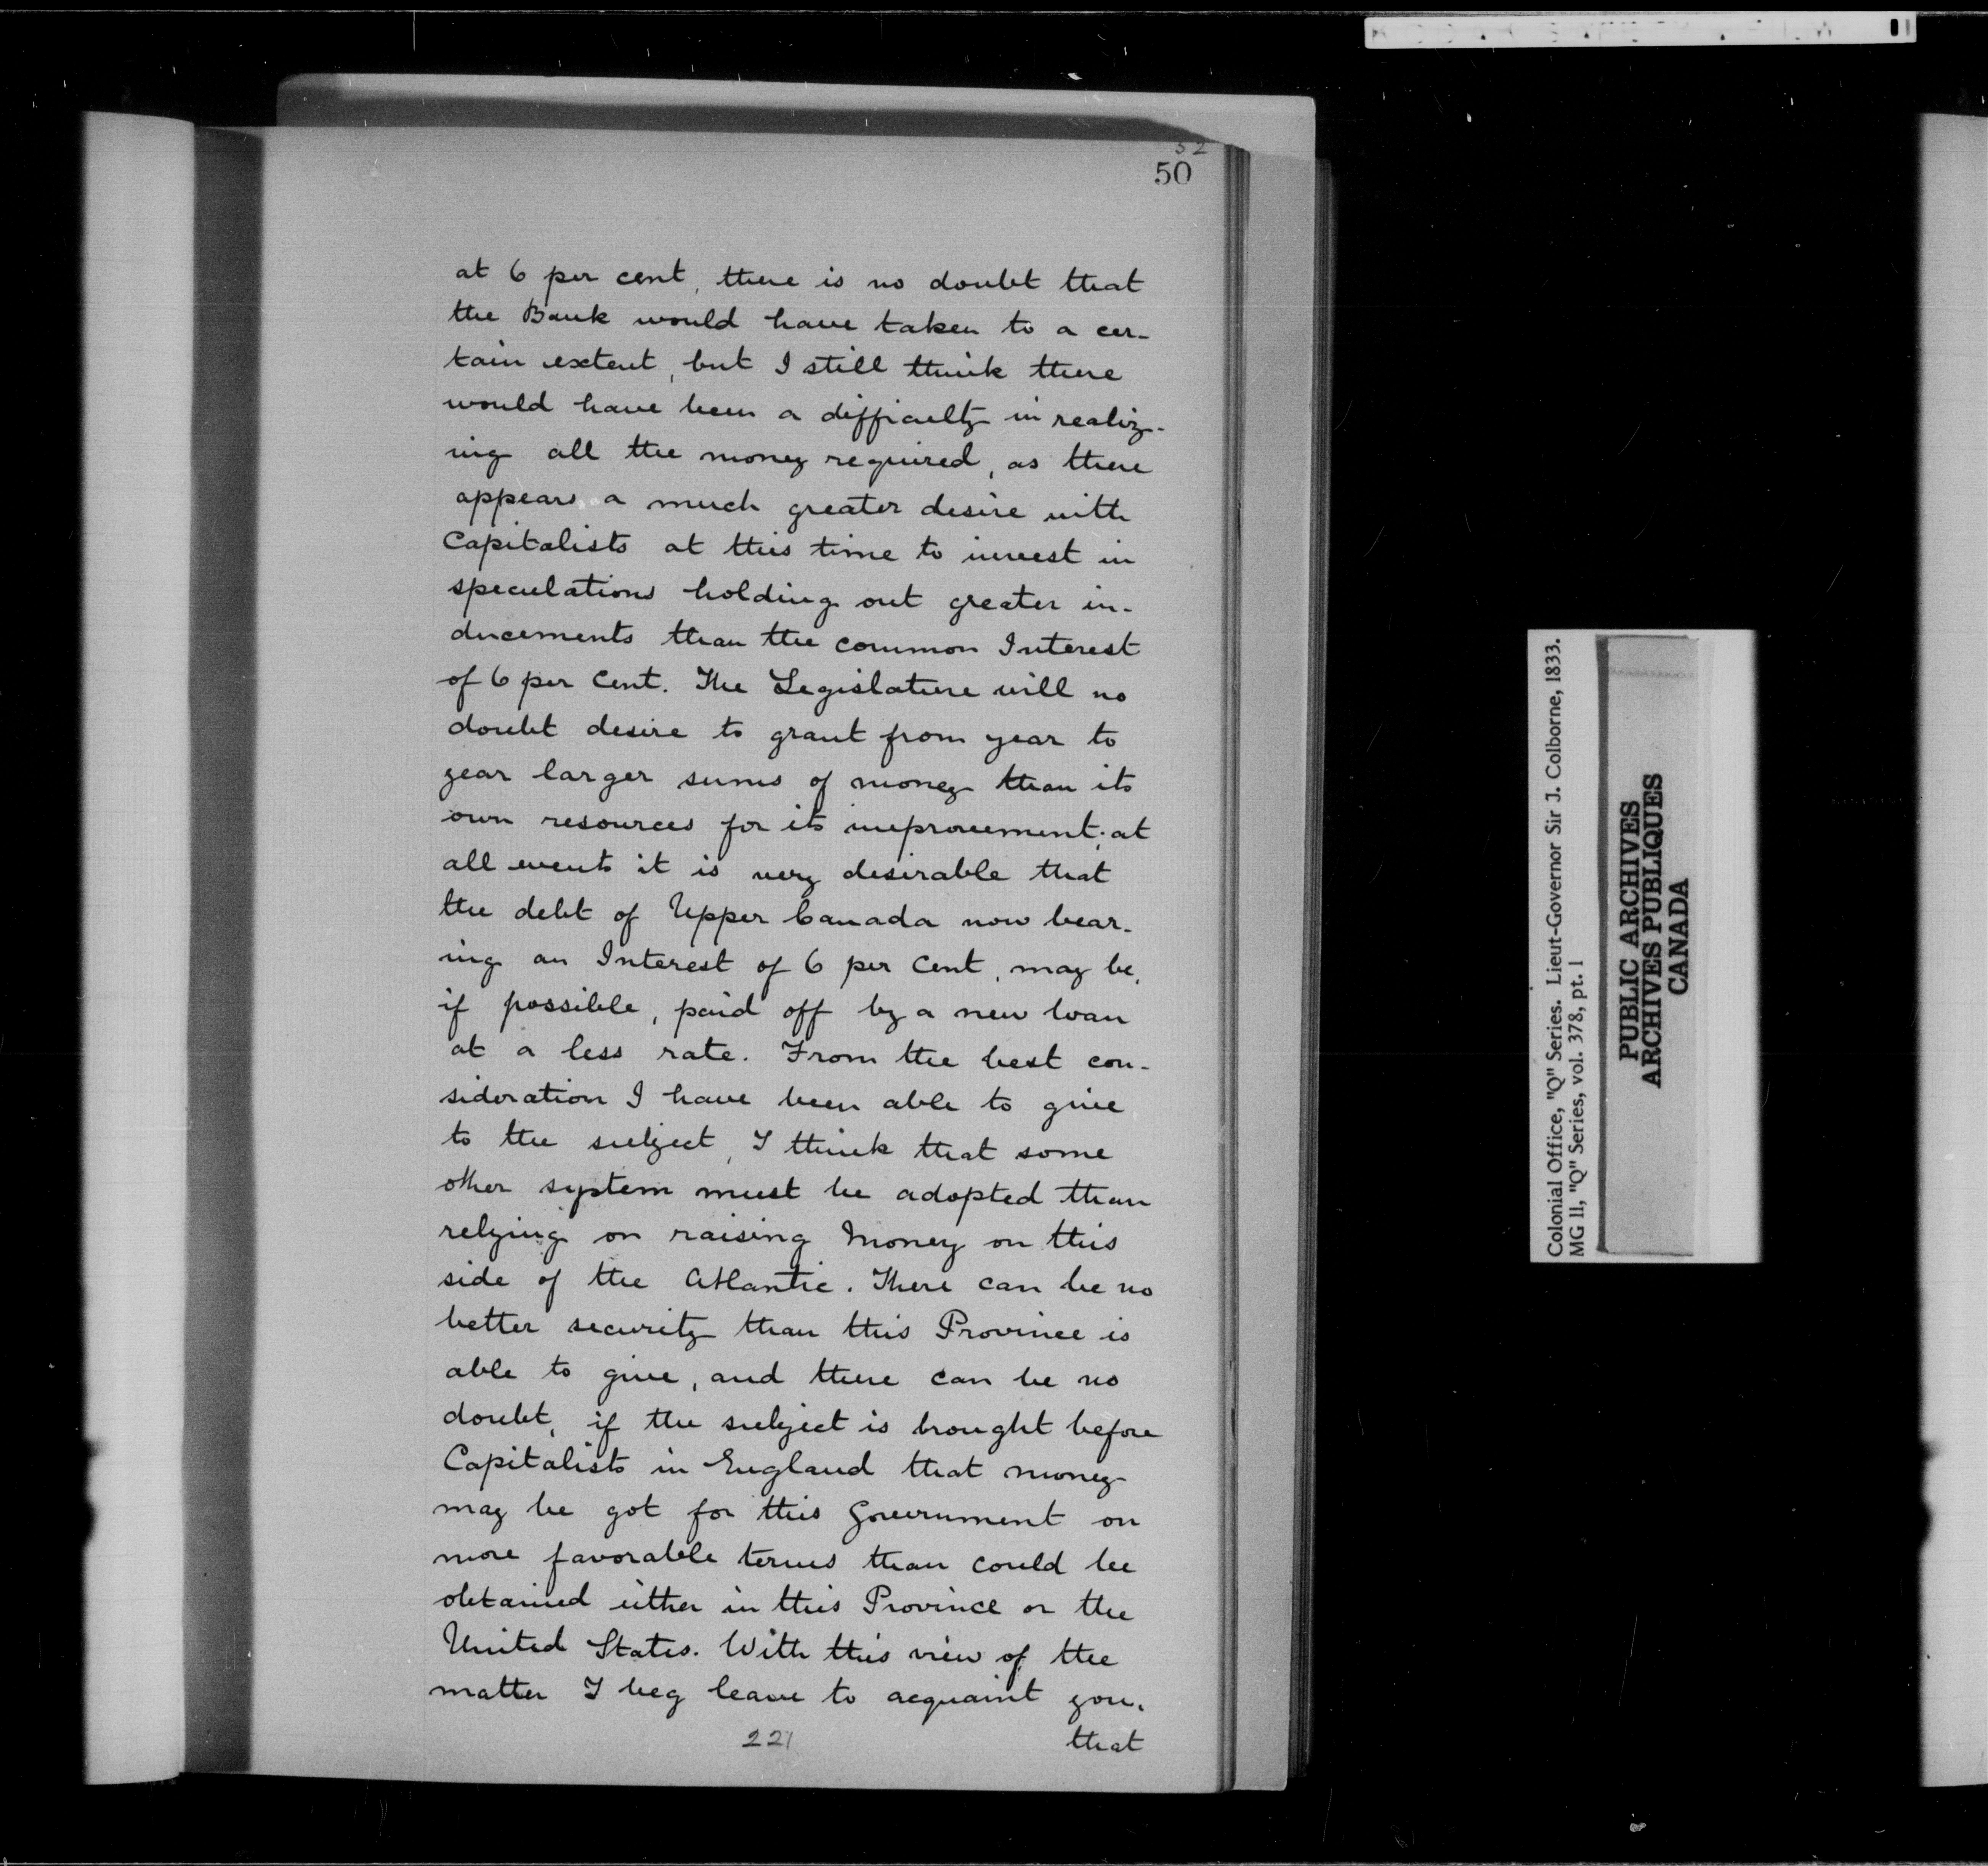 52
50
at 6 per cent, there is no doubt that
the Bank would have taken to a cer-
tain extent, but I still think there
would have been a difficulty in realiz-
ing all the money required, as there
appears a much greater desire with
Capitalists at this time to invest in
speculations holding out greater in-
ducements than the common Interest
of 6 per Cent. The Legislature will no
doubt desire to grant from year to
year larger sums of money than its
own resources for its improvement; at
all events it is very desirable that
the debt of Upper Canada now bear-
ing an Interest of 6 per Cent, may be,
if possible, paid off by a new loan
at a less rate. From the best con-
sideration I have been able to give
to the subject, I think that some
other system must be adopted than
relying on raising Money on this
side of the Atlantic. There can be no
better security than this Province is
able to give, and there can be no
doubt, if the subject is brought before
Capitalists in England that money
may be got for this Government on
more favorable terms than could be
obtained either in this Province or the
United States. With this view of the
matter I beg leave to acquaint you,
that
221
Colonial Office, "Q" Series. Lieut-Governor Sir J. Colborne, 1833.
MG 11, "Q" Series, vol. 378, pt. 1
PUBLIC ARCHIVES
ARCHIVES PUBLIQUES
CANADA